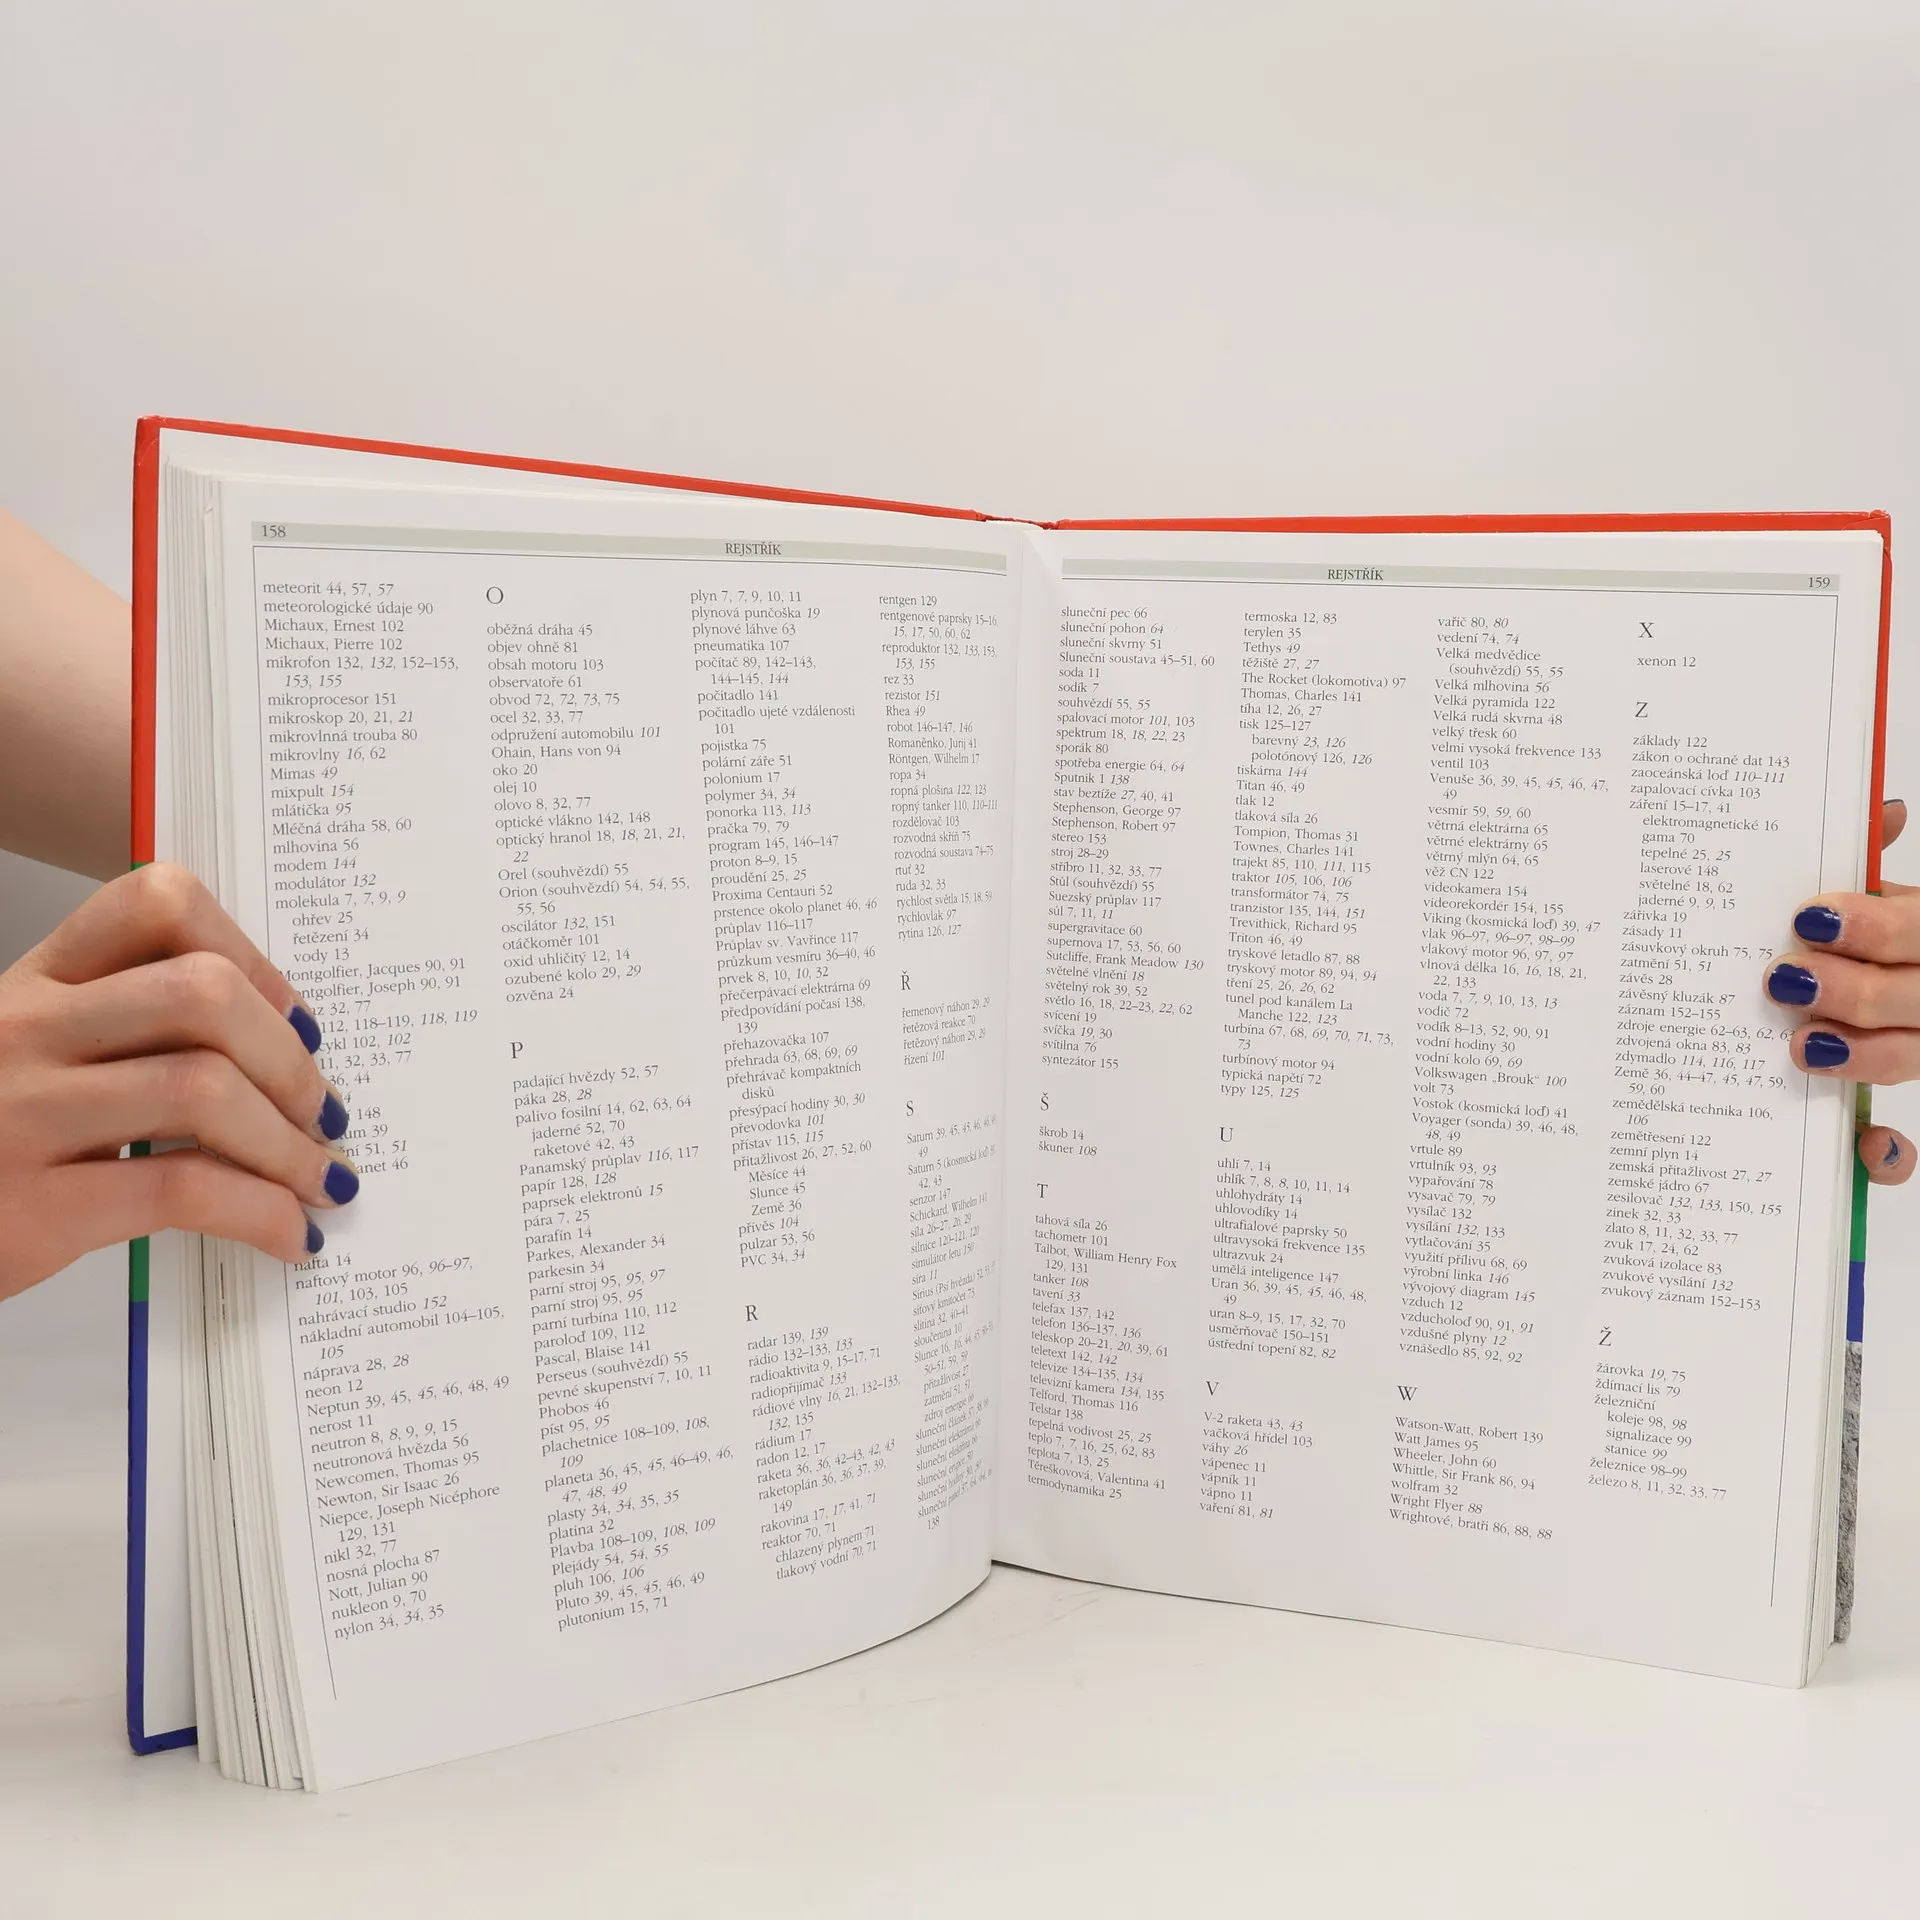 158
REJSTŘÍK
meteorit 44, 57, 57
meteorologické údaje 90
Michaux, Ernest 102
Michaux, Pierre 102
mikrofon 132, 132, 152–153,
153, 155
mikroprocesor 151
mikroskop 20, 21, 21
mikrovlnná trouba 80
mikrovlny 16, 62
Mimas 49
mixpult 154
mlátička 95
Mléčná dráha 58, 60
mlhovina 56
modem 144
modulátor 132
molekula 7, 7, 9, 9
ohřev 25
řetězení 34
vody 13
Montgolfier, Jacques 90, 91
ontgolfier, Joseph 90, 91
32, 77
112, 118–119, 118, 119
102, 102
11, 32, 33, 77
36, 44
148
39
51, 51
46
nafta 14
naftový motor 96, 96–97,
101, 103, 105
nahrávací studio 152
nákladní automobil 104–105,
105
náprava 28, 28
neon 12
Neptun 39, 45, 45, 46, 48, 49
nerost 11
neutron 8, 8, 9, 9, 15
neutronová hvězda 56
Newcomen, Thomas 95
Newton, Sir Isaac 26
Niepce, Joseph Nicéphore
129, 131
nikl 32, 77
nosná plocha 87
Nott, Julian 90
nukleon 9, 70
nylon 34, 34, 35
O
oběžná dráha 45
objev ohně 81
obsah motoru 103
observatoře 61
obvod 72, 72, 73, 75
ocel 32, 33, 77
odpružení automobilu 101
Ohain, Hans von 94
oko 20
olej 10
olovo 8, 32, 77
optické vlákno 142, 148
optický hranol 18, 18, 21, 21,
22
Orel (souhvězdí) 55
Orion (souhvězdí) 54, 54, 55,
55, 56
oscilátor 132, 151
otáčkoměr 101
oxid uhličitý 12, 14
ozubené kolo 29, 29
ozvěna 24
P
padající hvězdy 52, 57
páka 28, 28
palivo fosilní 14, 62, 63, 64
jaderné 52, 70
raketové 42, 43
Panamský průplav 116, 117
papír 128, 128
paprsek elektronů 15
pára 7, 25
parafín 14
Parkes, Alexander 34
parkesin 34
parní stroj 95, 95, 97
parní stroj 95, 95
parní turbína 110, 112
paroloď 109, 112
Pascal, Blaise 141
Perseus (souhvězdí) 55
pevné skupenství 7, 10, 11
Phobos 46
píst 95, 95
plachetnice 108–109, 108,
109
planeta 36, 45, 45, 46–49, 46,
47, 48, 49
plasty 34, 34, 35, 35
platina 32
Plavba 108–109, 108, 109
Plejády 54, 54, 55
pluh 106, 106
Pluto 39, 45, 45, 46, 49
plutonium 15, 71
plyn 7, 7, 9, 10, 11
plynová punčoška 19
plynové láhve 63
pneumatika 107
počítač 89, 142–143,
144–145, 144
počitadlo 141
počitadlo ujeté vzdálenosti
101
pojistka 75
polární záře 51
polonium 17
polymer 34, 34
ponorka 113, 113
pračka 79, 79
program 145, 146–147
proton 8–9, 15
proudění 25, 25
Proxima Centauri 52
prstence okolo planet 46, 46
průplav 116–117
Průplav sv. Vavřince 117
průzkum vesmíru 36–40, 46
prvek 8, 10, 10, 32
přečerpávací elektrárna 69
předpovídání počasí 138,
139
přehazovačka 107
přehrada 63, 68, 69, 69
přehrávač kompaktních
disků
přesýpací hodiny 30, 30
převodovka 101
přístav 115, 115
přitažlivost 26, 27, 52, 60
Měsíce 44
Slunce 45
Země 36
přívěs 104
pulzar 53, 56
PVC 34, 34
R
radar 139, 139
rádio 132–133, 133
radioaktivita 9, 15–17, 71
radiopřijímač 133
rádiové vlny 16, 21, 132–133,
132, 135
rádium 17
radon 12, 17
raketa 36, 36, 42–43, 42, 43
raketoplán 36, 36, 37, 39,
149
rakovina 17, 17, 41, 71
reaktor 70, 71
chlazený plynem 71
tlakový vodní 70, 71
rentgen 129
rentgenové paprsky 15–16
15, 17, 50, 60, 62
reproduktor 132, 133, 153,
153, 155
rez 33
rezistor 151
Rhea 49
robot 146–147, 146
Romaněnko, Jurij 41
Röntgen, Wilhelm 17
ropa 34
ropná plošina 122, 123
ropný tanker 110, 110–111
rozdělovač 103
rozvodná skříň 75
rozvodná soustava 74–75
rtuť 32
ruda 32, 33
rychlost světla 15, 18, 59
rychlovlak 97
rytina 126, 127
Ř
řemenový náhon 29, 29
řetězová reakce 70
řetězový náhon 29, 29
řízení 101
S
Saturn 39, 45, 45, 46, 48,
49
Saturn 5 (kosmická loď)
42, 43
senzor 147
Schickard, Wilhelm 141
síla 26–27, 26, 29
silnice 120–121, 120
simulátor letu 150
síra 11
Sirius (Psí hvězda) 52,
síťový kmitočet 73
slitina 32, 40–41
sloučenina 10
Slunce 16, 16, 44, 45,
50–51, 59, 59
přitažlivost 27
zatmění 51, 51
zdroj energie 66
sluneční článek
sluneční elektrárna 66
sluneční
sluneční
sluneční
sluneční panel
138
REJSTŘÍK
159
sluneční pec 66
sluneční pohon 64
sluneční skvrny 51
Sluneční soustava 45–51, 60
soda 11
sodík 7
souhvězdí 55, 55
spalovací motor 101, 103
spektrum 18, 18, 22, 23
sporák 80
spotřeba energie 64, 64
Sputnik 1 138
stav beztíže 27, 40, 41
Stephenson, George 97
Stephenson, Robert 97
stereo 153
stroj 28–29
stříbro 11, 32, 33, 77
Stůl (souhvězdí) 55
Suezský průplav 117
sůl 7, 11, 11
supergravitace 60
supernova 17, 53, 56, 60
Sutcliffe, Frank Meadow 130
světelné vlnění 18
světelný rok 39, 52
světlo 16, 18, 22–23, 22, 62
svícení 19
svíčka 19, 30
svítilna 76
syntezátor 155
Š
škrob 14
škuner 108
T
tahová síla 26
tachometr 101
Talbot, William Henry Fox
129, 131
tanker 108
tavení 33
telefax 137, 142
telefon 136–137, 136
teleskop 20–21, 20, 39, 61
teletext 142, 142
televize 134–135, 134
televizní kamera 134, 135
Telford, Thomas 116
Telstar 138
tepelná vodivost 25, 25
teplo 7, 7, 16, 25, 62, 83
teplota 7, 13, 25
Těreškovová, Valentina 41
termodynamika 25
termoska 12, 83
terylen 35
Tethys 49
těžiště 27, 27
The Rocket (lokomotiva) 97
Thomas, Charles 141
tíha 12, 26, 27
tisk 125–127
barevný 23, 126
polotónový 126, 126
tiskárna 144
Titan 46, 49
tlak 12
tlaková síla 26
Tompion, Thomas 31
Townes, Charles 141
trajekt 85, 110, 111, 115
traktor 105, 106, 106
transformátor 74, 75
tranzistor 135, 144, 151
Trevithick, Richard 95
Triton 46, 49
tryskové letadlo 87, 88
tryskový motor 89, 94, 94
tření 25, 26, 26, 62
tunel pod kanálem La
Manche 122, 123
turbína 67, 68, 69, 70, 71, 73,
73
turbínový motor 94
typická napětí 72
typy 125, 125
U
uhlí 7, 14
uhlík 7, 8, 8, 10, 11, 14
uhlohydráty 14
uhlovodíky 14
ultrafialové paprsky 50
ultravysoká frekvence 135
ultrazvuk 24
umělá inteligence 147
Uran 36, 39, 45, 45, 46, 48,
49
uran 8–9, 15, 17, 32, 70
usměrňovač 150–151
ústřední topení 82, 82
V
V-2 raketa 43, 43
vačková hřídel 103
váhy 26
vápenec 11
vápník 11
vápno 11
vaření 81, 81
vařič 80, 80
vedení 74, 74
Velká medvědice
(souhvězdí) 55, 55
Velká mlhovina 56
Velká pyramida 122
Velká rudá skvrna 48
velký třesk 60
velmi vysoká frekvence 133
ventil 103
Venuše 36, 39, 45, 45, 46, 47,
49
vesmír 59, 59, 60
větrná elektrárna 65
větrné elektrárny 65
větrný mlýn 64, 65
věž CN 122
videokamera 154
videorekordér 154, 155
Viking (kosmická loď) 39, 47
vlak 96–97, 96–97, 98–99
vlakový motor 96, 97, 97
vlnová délka 16, 16, 18, 21,
22, 133
voda 7, 7, 9, 10, 13, 13
vodič 72
vodík 8–13, 52, 90, 91
vodní hodiny 30
vodní kolo 69, 69
Volkswagen „Brouk“ 100
volt 73
Vostok (kosmická loď) 41
Voyager (sonda) 39, 46, 48,
48, 49
vrtule 89
vrtulník 93, 93
vypařování 78
vysavač 79, 79
vysílač 132
vysílání 132, 133
vytlačování 35
využití přílivu 68, 69
výrobní linka 146
vývojový diagram 145
vzduch 12
vzducholoď 90, 91, 91
vzdušné plyny 12
vznášedlo 85, 92, 92
W
Watson-Watt, Robert 139
Watt James 95
Wheeler, John 60
Whittle, Sir Frank 86, 94
wolfram 32
Wright Flyer 88
Wrightové, bratři 86, 88, 88
X
xenon 12
Z
základy 122
zákon o ochraně dat 143
zaoceánská loď 110–111
zapalovací cívka 103
záření 15–17, 41
elektromagnetické 16
gama 70
tepelné 25, 25
laserové 148
světelné 18, 62
jaderné 9, 9, 15
zářivka 19
zásady 11
zásuvkový okruh 75, 75
zatmění 51, 51
závěs 28
závěsný kluzák 87
záznam 152–155
zdroje energie 62–63, 62, 63
zdvojená okna 83, 83
zdymadlo 114, 116, 117
Země 36, 44–47, 45, 47, 59,
59, 60
zemědělská technika 106,
106
zemětřesení 122
zemní plyn 14
zemská přitažlivost 27, 27
zemské jádro 67
zesilovač 132, 133, 150, 155
zinek 32, 33
zlato 8, 11, 32, 33, 77
zvuk 17, 24, 62
zvuková izolace 83
zvukové vysílání 132
zvukový záznam 152–153
Ž
žárovka 19, 75
ždímací lis 79
železniční
koleje 98, 98
signalizace 99
stanice 99
železnice 98–99
železo 8, 11, 32, 33, 77